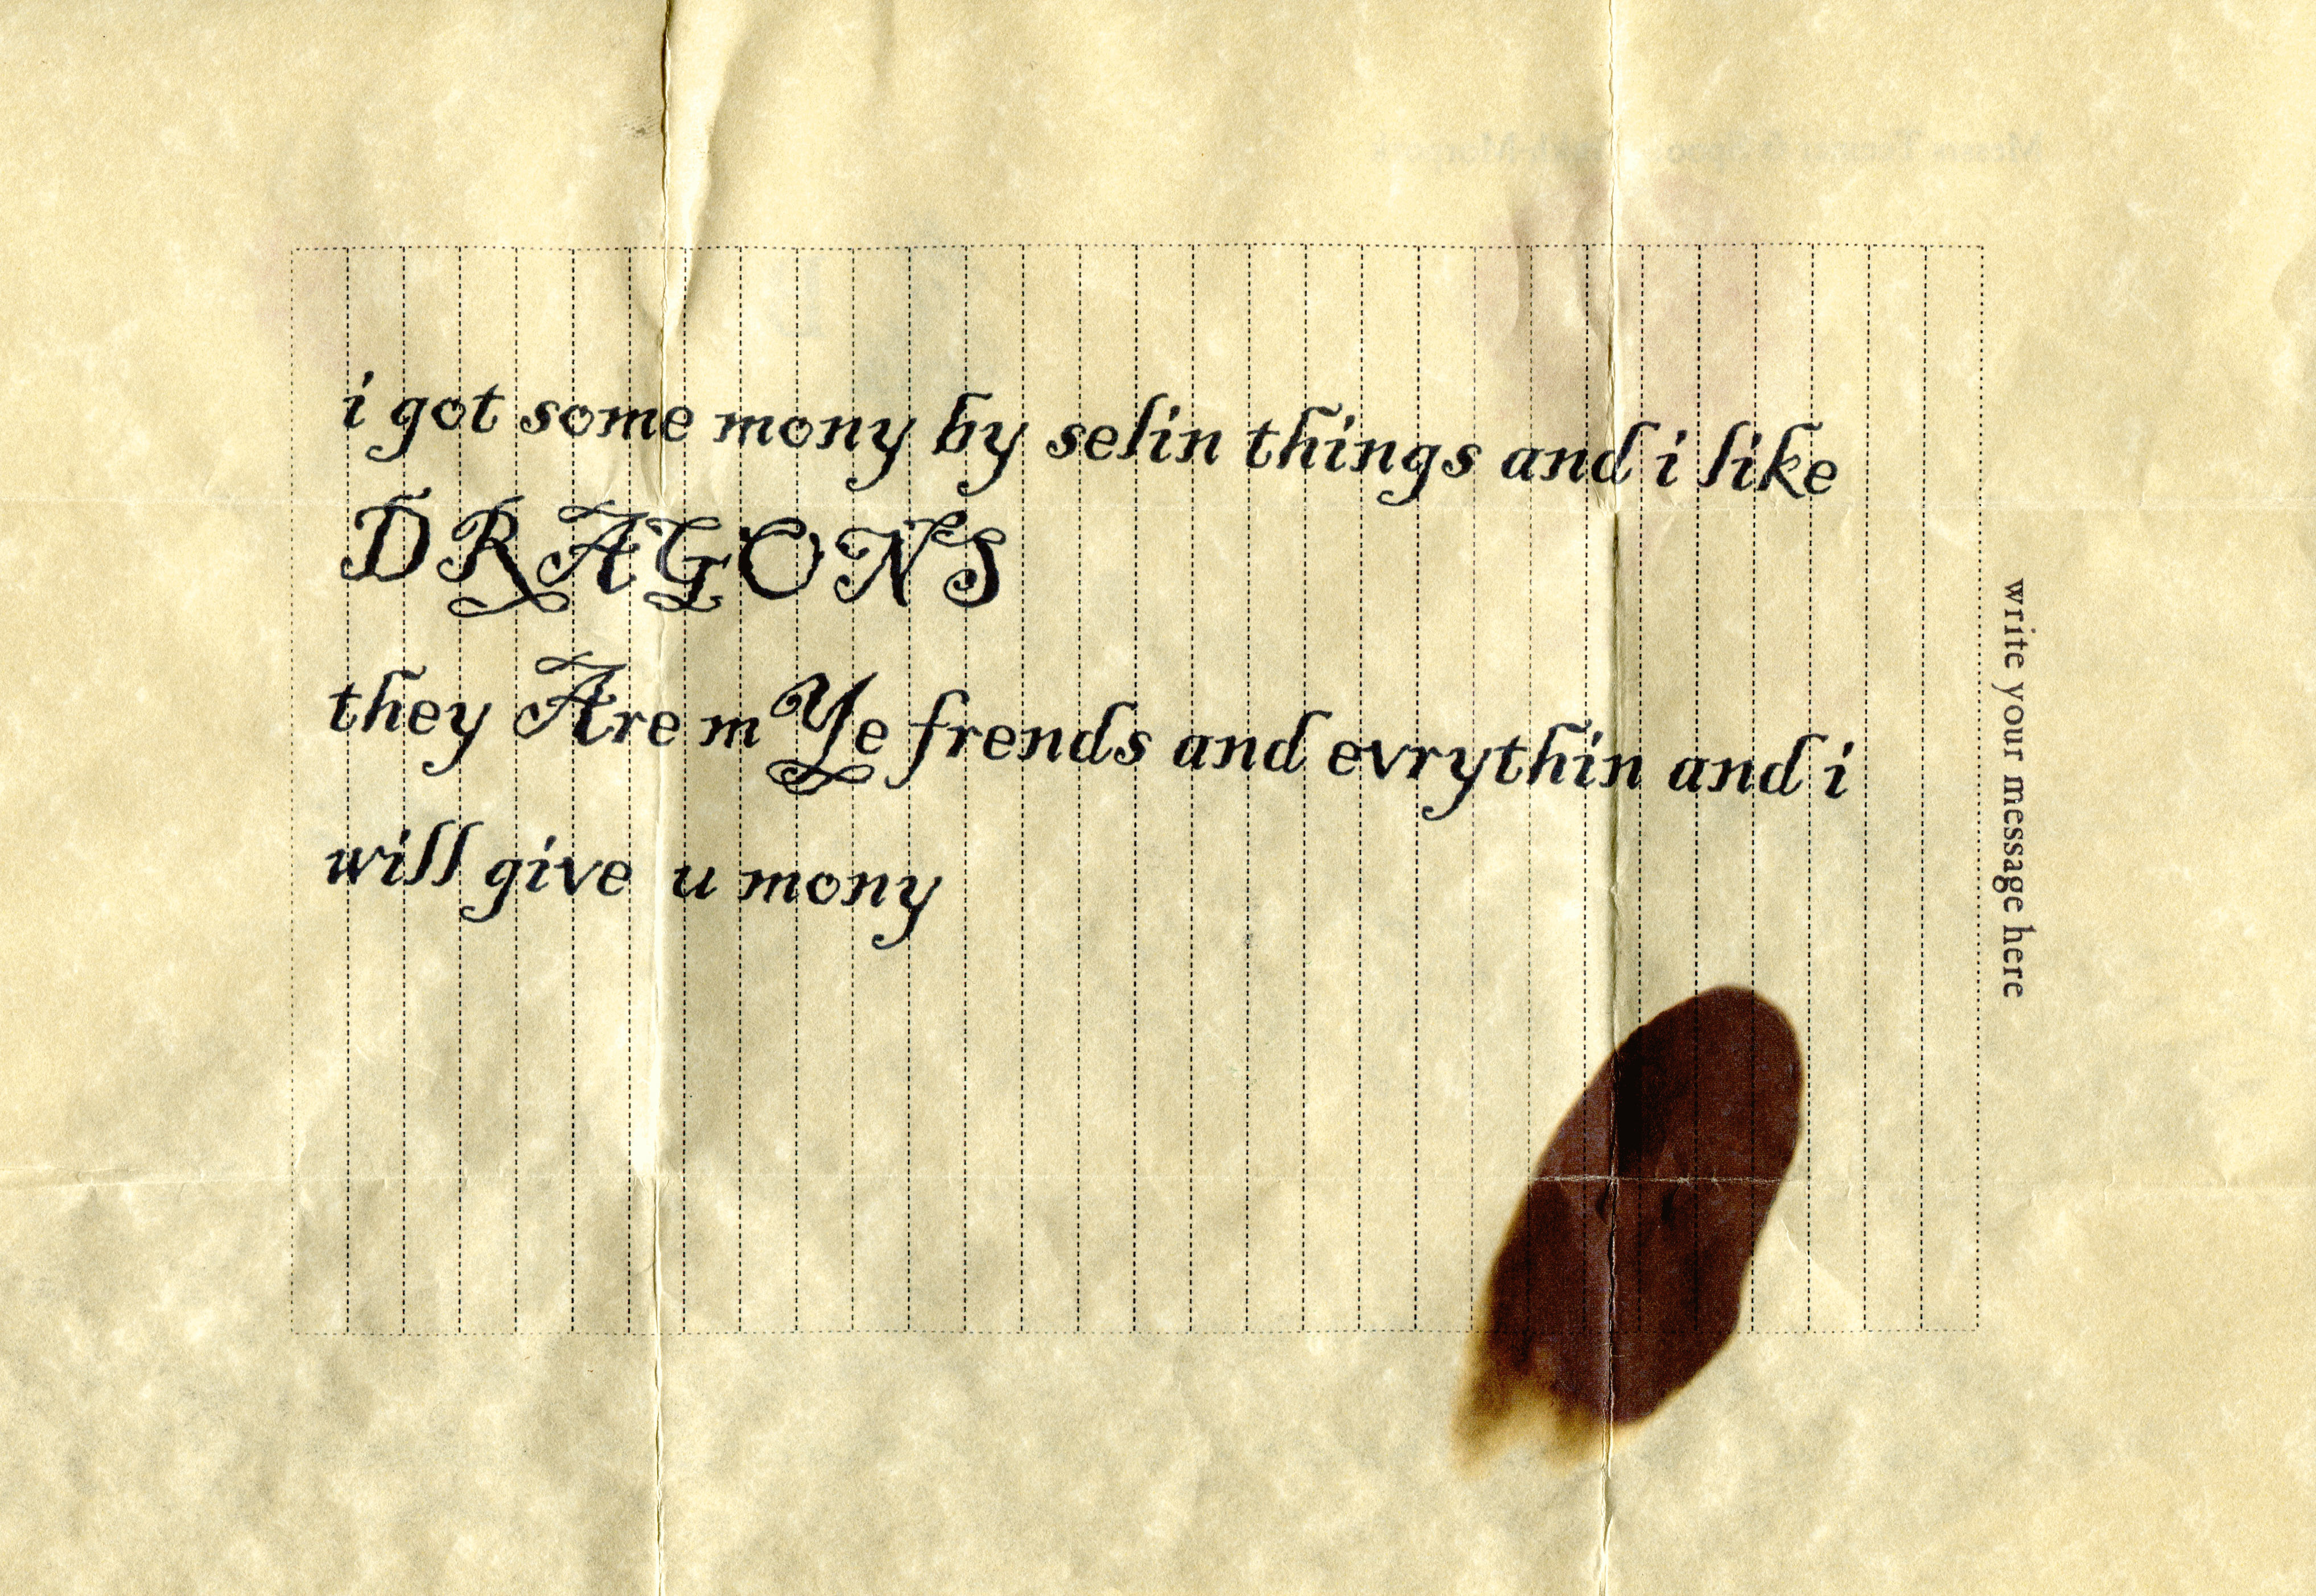 i got some mony by selin things and i like
DRAGONS
they Are mYe frends and evrythin and i
will give u mony
write your message here